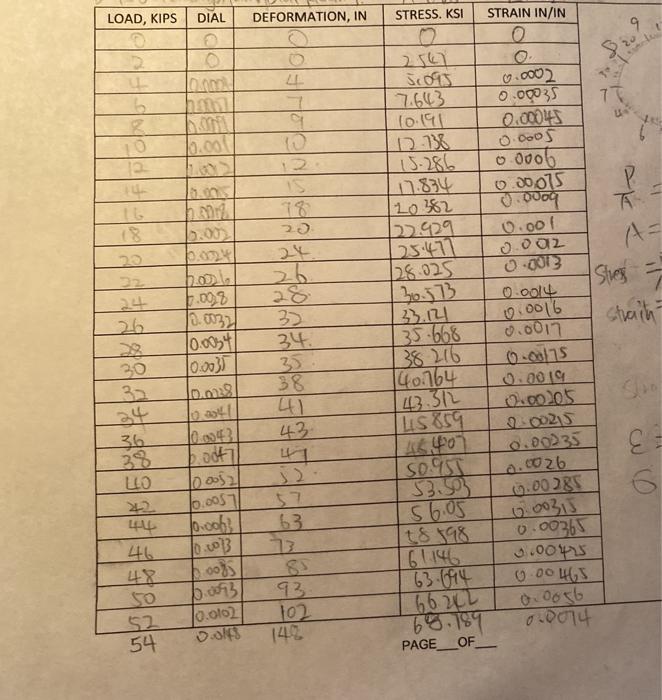 LOAD, KIPS DIAL DEFORMATION, IN STRESS. KSI STRAIN IN/IN
0 0 0 0 0
2 0 0 2.547 0.
4 4 5.095 0.0002
6 7 7.643 0.00035
8 9 10.191 0.00045
10 0.001 10 12.738 0.0005
12 12. 15.286 0.0006
14 15 17.834 0.00075
16 18 20.382 0.0009
18 0.002 20 22.929 0.001
20 0.0024 24 25.477 0.0012
22 0.0026 26 28.025 0.0013
24 0.0028 28 30.573 0.0014
26 0.0032 32 33.121 0.0016
28 0.0034 34. 35.668 0.0017
30 0.0035 35 38.216 0.00175
32 0.0038 38 40.764 0.0019
34 0.0041 41 43.312 0.00205
36 0.0043 43 45.859 0.00215
38 0.0047 47 48.407 0.00235
40 0.0052 52 50.955 0.0026
42 0.0057 57 53.503 0.00285
44 0.0063 63 56.05 0.00315
46 0.0073 73 58.598 0.00365
48 0.0085 85 61.146 0.00425
50 0.0093 93 63.694 0.00465
52 0.0102 102 66.242 0.0056
54 0.0148 148 68.789 0.0074
PAGE__OF__
9
8
7
6
P
A =
A =
Stress =
strain =
ε =